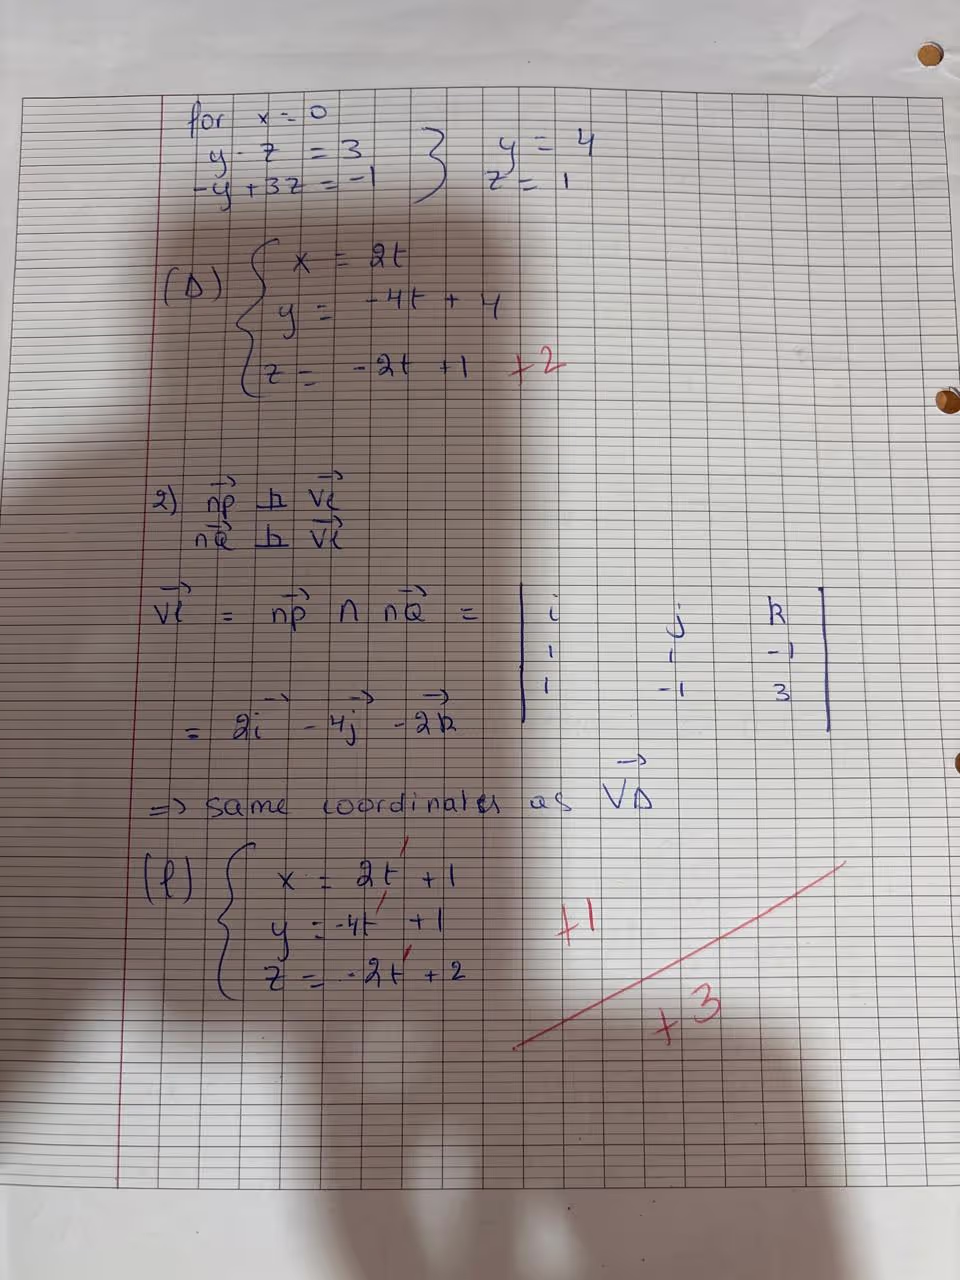 for x = 0
y - z = 3
-y + 3z = -1 } y = 4
z = 1
(Δ) { x = 2t
y = -4t + 4
z = -2t + 1 +2
2) nP ⊥ Vl
nQ ⊥ Vl
Vl = nP ∧ nQ = | i j k |
| 1 1 -1 |
| 1 -1 3 |
= 2i - 4j - 2k
=> same coordinates as VΔ
(l) { x = 2t' + 1
y = -4t' + 1 +1
z = -2t' + 2
+3